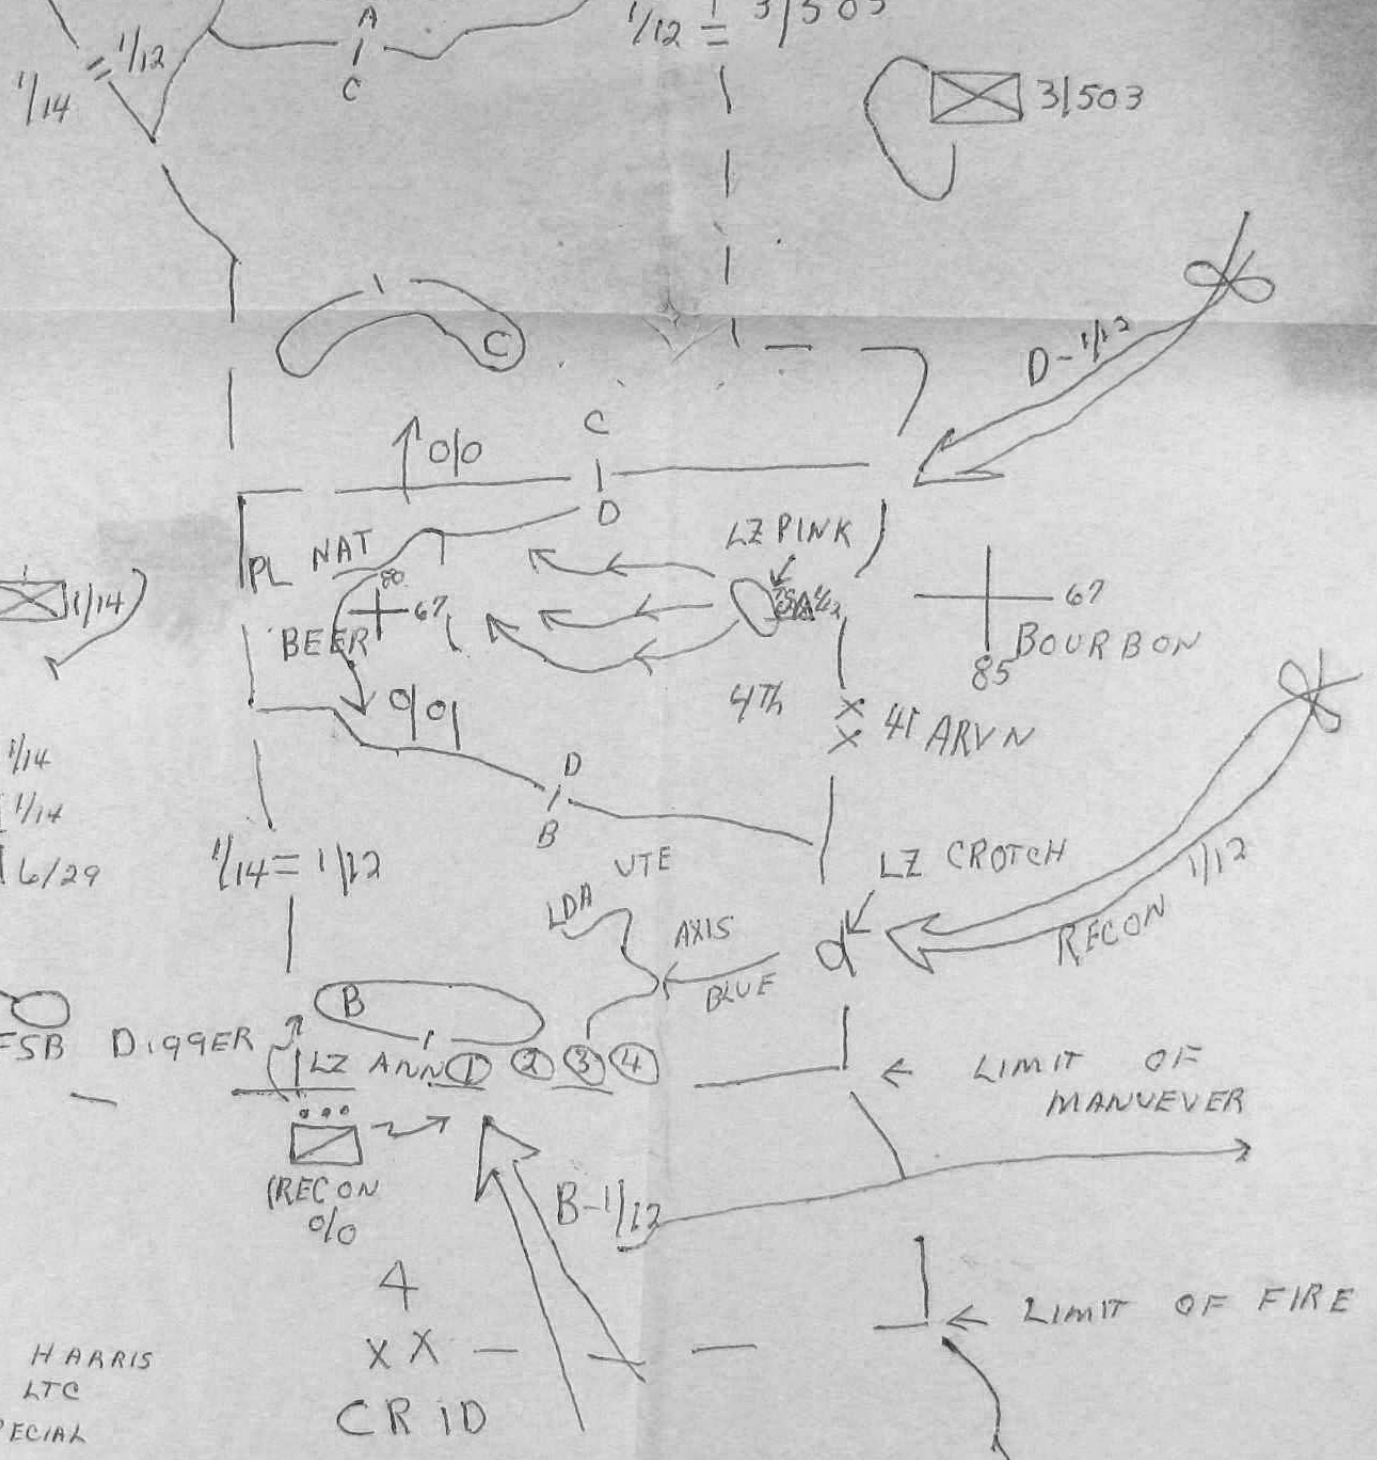 A
C
1/12
1/14
1/12 = 3/503
3/503
C
D-1/12
C
0/0
D
PL NAT
LZ PINK
80
67
BEER
1/14
67
85
BOURBON
4TH
X
X
41 ARVN
0/0
1/14
1/14
6/29
D
B
1/14 = 1/12
UTE
LZ CROTCH
LDA
AXIS
BLUE
RECON 1/12
B
FSB DIGGER
LZ ANN 1 2 3 4
LIMIT OF
MANUEVER
RECON
0/0
B-1/12
4
XX
CRID
LIMIT OF FIRE
HARRIS
LTC
PECIAL